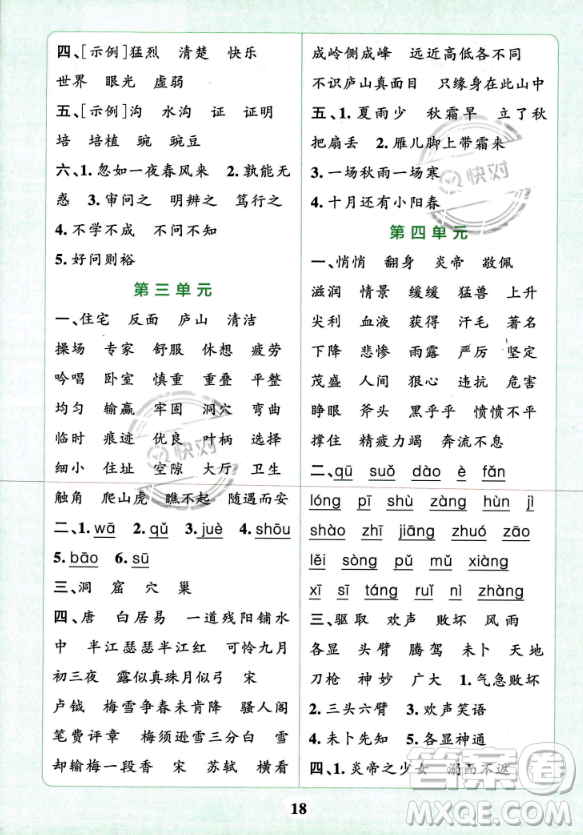 四、[示例]猛烈 清楚 快乐
世界 眼光 虚弱
五、[示例]沟 水沟 证 证明
培 培植 豌 豌豆
六、1.忽如一夜春风来 2.孰能无
惑 3.审问之 明辨之 笃行之
4.不学不成 不问不知
5.好问则裕
第三单元
一、住宅 反面 庐山 清洁
操场 专家 舒服 休想 疲劳
吟唱 卧室 慎重 重叠 平整
均匀 输赢 牢固 洞穴 弯曲
临时 痕迹 优良 叶柄 选择
细小 住址 空隙 大厅 卫生
触角 爬山虎 瞧不起 随遇而安
二、1.wā 2.qǔ 3.juè 4.shōu
5.bāo 6.sū
三、洞 窟 穴 巢
四、唐 白居易 一道残阳铺水
中 半江瑟瑟半江红 可怜九月
初三夜 露似真珠月似弓 宋
卢钺 梅雪争春未肯降 骚人阁
笔费评章 梅须逊雪三分白 雪
却输梅一段香 宋 苏轼 横看
成岭侧成峰 远近高低各不同
不识庐山真面目 只缘身在此山中
五、1.夏雨少 秋霜早 立了秋
把扇丢 2.雁儿脚上带霜来
3.一场秋雨一场寒
4.十月还有小阳春
第四单元
一、悄悄 翻身 炎帝 敬佩
滋润 情景 缓缓 猛兽 上升
尖利 血液 获得 汗毛 著名
下降 悲惨 雨露 严厉 坚定
茂盛 人间 狠心 违抗 危害
睁眼 斧头 黑乎乎 愤愤不平
撑住 精疲力竭 奔流不息
二、qū suǒ dào è fǎn
lóng pī shù zàng hùn jì
shào zhī jiāng zhuó yù
lěi sòng pǔ mǔ xiàng
xī sī táng ruǐ nì zhàng
三、驱取 欢声 败坏 风雨
各显 头臂 腾驾 未卜 天地
刀枪 神妙 1.气急败坏
2.三头六臂 3.欢声笑语
4.未卜先知 5.各显神通
四、1.炎帝之少女 溺而不返
18
快对
快对
答案圈
MXQE.COM